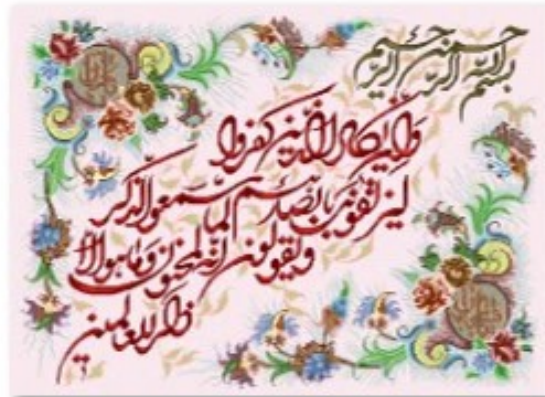 بسم الله الرحمن الرحيم
وان يكاد الذين كفروا
ليزلقونك بابصارهم لما سمعوا الذكر
ويقولون انه لمجنون وما هو الا
ذكر للعالمين